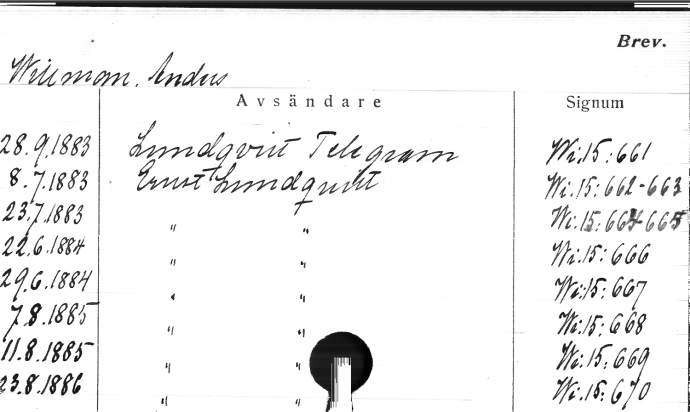 Brev.
Willman. Anders
Avsändare Signum
28.9.1883 Lundqvist Telegram Wi:15:661
8.7.1883 Ernst Lundqvist Wi:15:662-663
23.7.1883 " " Wi:15:664-665
22.6.1884 " " Wi:15:666
29.6.1884 " " Wi:15:667
7.8.1885 " " Wi:15:668
11.8.1885 " " Wi:15:669
23.8.1886 " " Wi:15:670